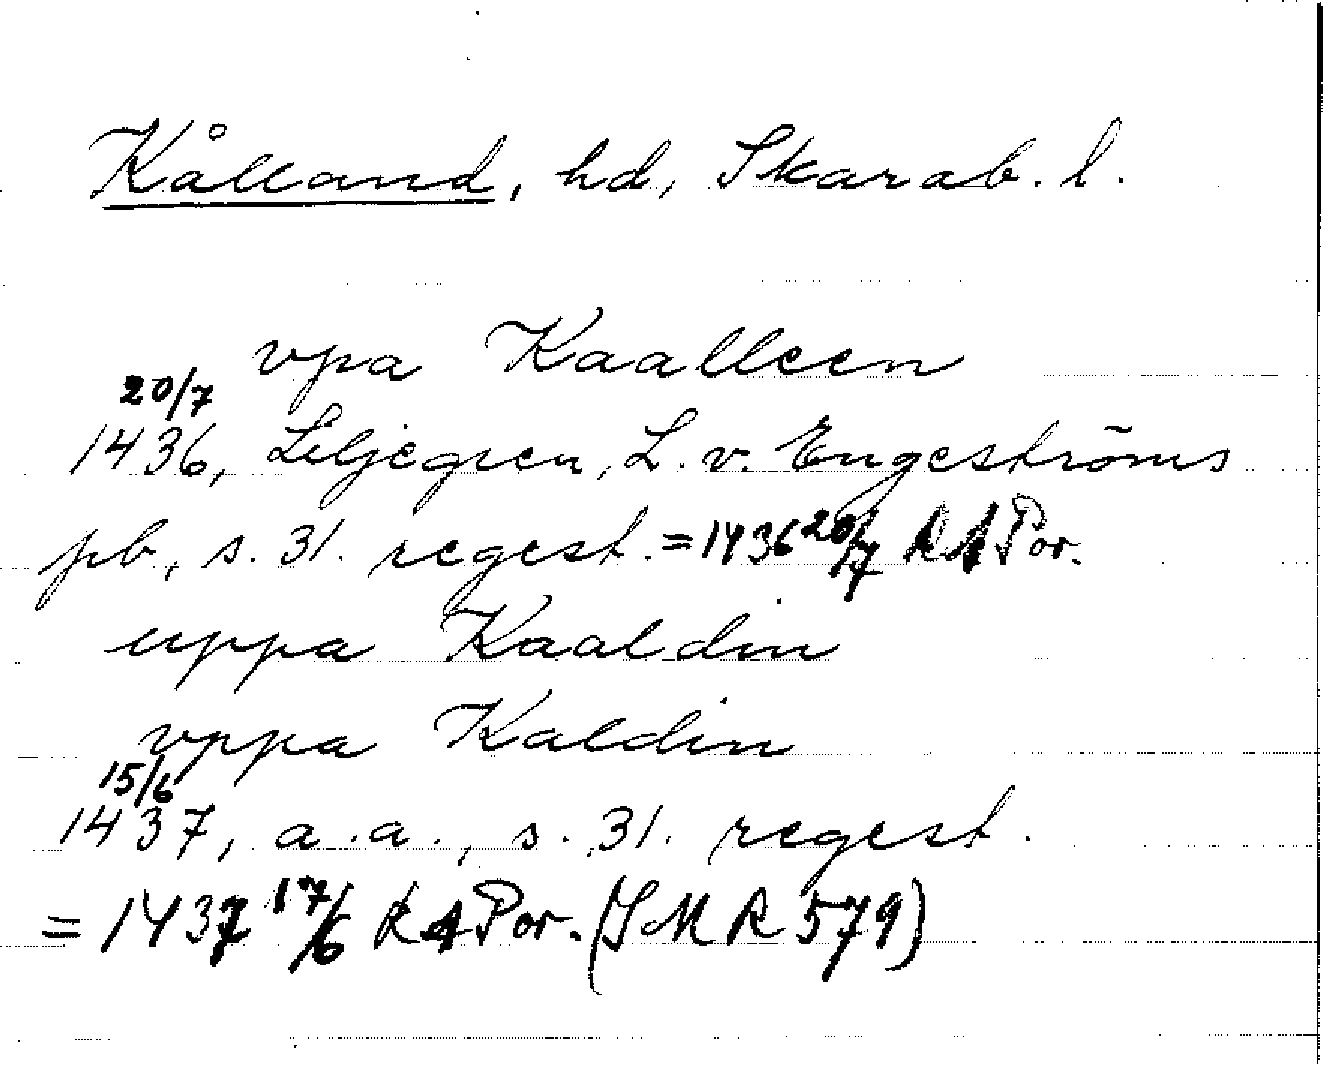 Kålland, hd, Skarab. l.
vpa Kaalleen
20/7
1436, Liljegren, L. v. Engeströms
pb, s. 31. regest. = 1436 20/7 RA Por.
uppa Kaaldin
vppa Kaldin
15/6
1437, a.a., s. 31. regest.
= 1437 17/6 RA Por. (SMR 579)